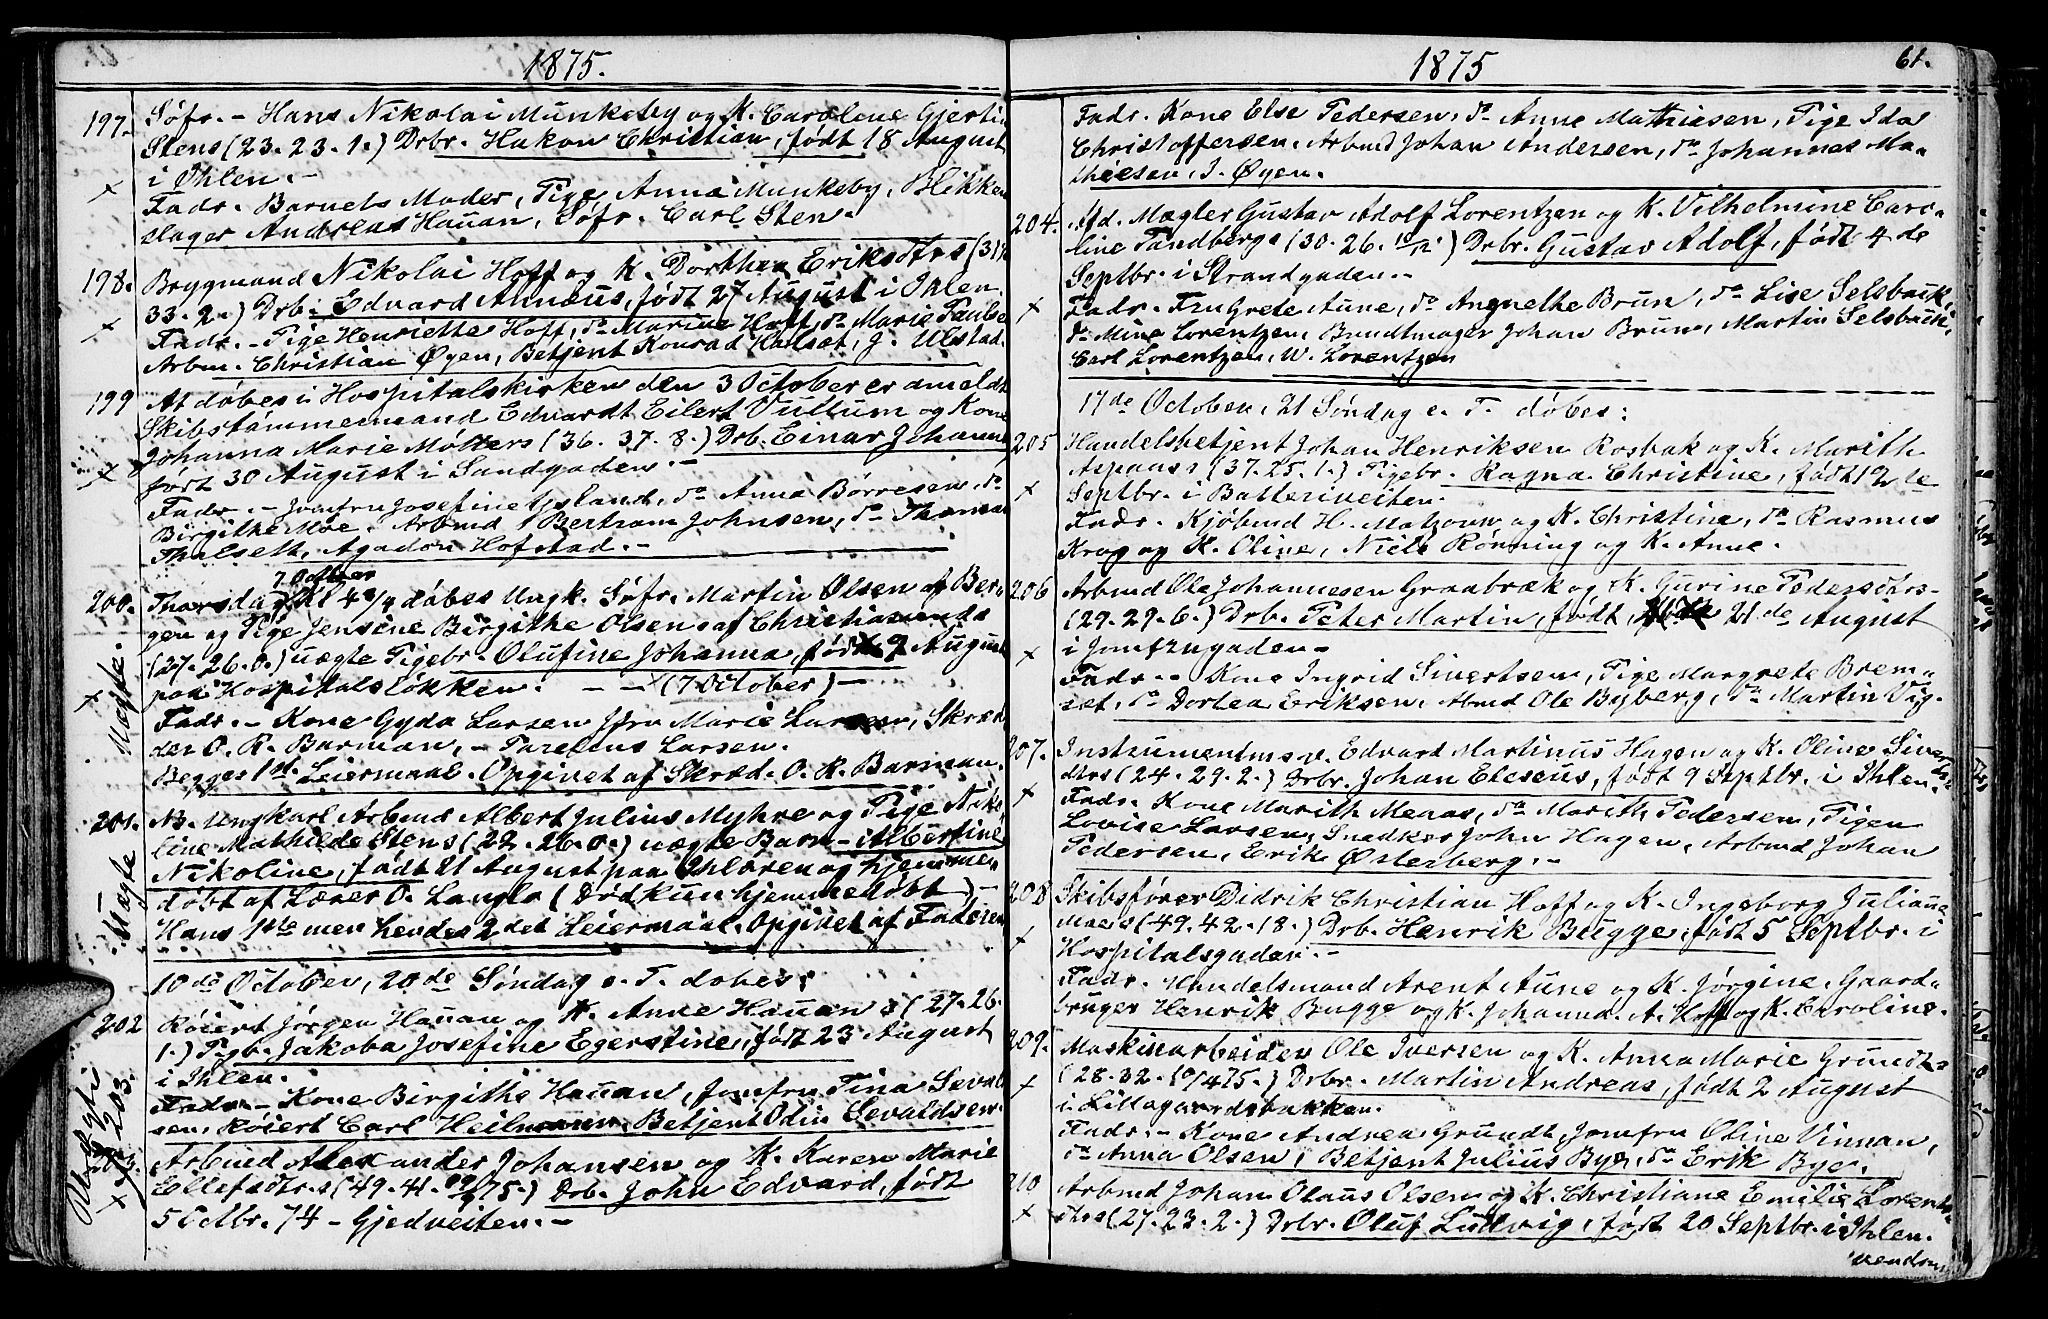 1875.
197. Søfr. - Hans Nikolai Munkeby og K. Caroline Gjertine
Stens (23. 23. 1.) Drbr. Hakon Christian, født 18 August
i Ihlen. -
Fadr. Barnets Moder, Pige Anna Munkeby, Blikken
slager Andreas Hauan, Søfr. Carl Sten.
198. Brygmand Nikolai Hoff og K. Dorthea Eriksdtrs (31.
33. 2.) Drb. Edvard Annæus, født 27 August i Ihlen.
Fadr. - Pige Henriette Hoff, do Marine Hoff, do Marie
Arbm. Christian Øyen, Betjent Konrad Hadsæt, J. Ulstad.
199 At døbes i Hospitalskirken den 3 October er anmeldt
Skibstømmermand Edvardt Eilert Vullum og Kone
Johanna Marie Molters (36. 37. 8.) Drb. Einar Johannes
født 30 August i Sandgaden. -
Fadr. - Jomfru Josefine Ysland, do Anna Børresen, do
Birgithe Moe. Arbmd Bertram Johnsen, do Thomas
Thalseth, Agadon Hofstad. -
7 October
200. Thorsdag Kl 4 3/4 døbes Ungk. Søfr. Martin Olsen af Ber-
gen og Pige Jensine Birgithe Olsen af Christiansunds
(27. 26. 0.) uægte Pigebr. Olufine Johanna, født 9 August
paa Hospitalsløkken. - - (7 October) -
Uægte.
Fadr. - Kone Gyda Larsen Jfru Marie Larsen, Skræd-
der O. R. Barman, - Larsen.
Begges 1st. Leiermaal. Opgivet af Skræd. O. R. Barman.
201. N. Ungkarl Arbmd Albert Julius Myhre og Pige Niko-
line Mathilde Stens (22. 26. 0.) uægte Barn - Albertine
Nikoline, født 21 August paa Ihløren og hjemme-
døbt af Lærer O. Langlo (Død kun hjemmedøbt) -
Uægte
Hans 1ste men hendes 2det Leiermaal. Opgivet af Faderen
10de October, 20de Søndag e. T. døbes:
202 Røiert Jørgen Hauan og K. Anne Hauan s (27. 26.
1.) Pigb. Jakoba Josefine Egerstine, født 23 August
i Ihlen.
Fadr. - Kone Birgithe Hauan, Jomfru Tina Sevald
sen, Røiert Carl Heilmann, Betjent Odin Sevaldsen.
203. Arbmd Alexander Johansen og K. Karen Marie
Ellefsdtrs (49. 41. /75.) Drb. John Edvard, født
5 Octbr. 74 - Gjedveiten. -
1875
61.
Fadr. Kone Else Pedersen, do Anne Mathiesen, Pige Ida
Christoffersen. Arbmd Johan Andersen, do Johannes Ma-
thiesen, J. Øyen.
204. Afd. Mægler Gustav Adolf Lorentzen og K. Vilhelmine Caro-
line Tandbergs (30. 26. ) Drbr. Gustav Adolf, født 4de
Septbr. i Strandgaden. -
Fadr. Fru Grete Aune, do Angnethe Brun, do Lise Selsbak,
do Mine Lorentzen, Bundtmager Johan Brun, Martin Selsbak,
Carl Lorentzen, W. Lorentzen
17de October, 21 Søndag e. T. døbes:
205 Handelsbetjent Johan Henriksen Rosbak og K. Marith
Aspaas s (37. 25. 1.) Pigebr. Ragna Christine, født 12te
Septbr. i Batteriveiten.
Fadr. Kjøbmd H. Matzow og K. Christine, do Rasmus
Krog og K. Oline, Niels Rønning og K. Anne.
206 Arbmd Ole Johannesen Graabræk og K. Gurine Pedersdtrs-
(29. 29. 6.) Drb. Peter Martin, født 21de August
i Jomfrugaden -
Fadr. - Kone Ingrid Sivertsen, Pige Margrete Brem-
set, do Dortea Eriksen, Arbmd Ole Byberg, do Martin Vig.
207. Instrumentmr. Edvard Martinus Hagen og K. Oline Siverts-
dtrs (24. 29. 2.) Drbr. Johan Eleseus, født 9 Septbr. i Ihlen.
Fadr. Kone Marith Menas, do Marith Pedersen, Pigen
Lovise Larsen, Snedker John Hagen, Arbmd Johan
Pedersen, Erik Østerberg. -
208 Skibsfører Didrik Christian Hoff og K. Ingeborg Juliane
Moe s (49. 42. 18.) Drb. Henrik Bugge, født 5 Septbr. i
Hospitalsgaden. -
Fadr. Handelsmand Arent Aune og K. Jørgine, Gaard-
bruger Henrik Bugge og K. Johanna. A. Hoff og K. Caroline.
209. Maskinarbeider Ole Iversen og K. Anna Marie Grundt-
(28. 32. 10/4 75.) Drbr. Martin Andreas, født 2 August
i Lillegaardsbakken.
Fadr. - Kone Andrea Grundt, Jomfru Oline Vinnan,
do Anna Olsen, Betjent Julius Bye, do Erik Bye.
210 Arbmd Johan Olaus Olsen og K. Christiane Emilie Lorents-
dtrs (27. 23. 2.) Drbr. Oluf Ludvig, født 20 Septbr. i Ihlen.